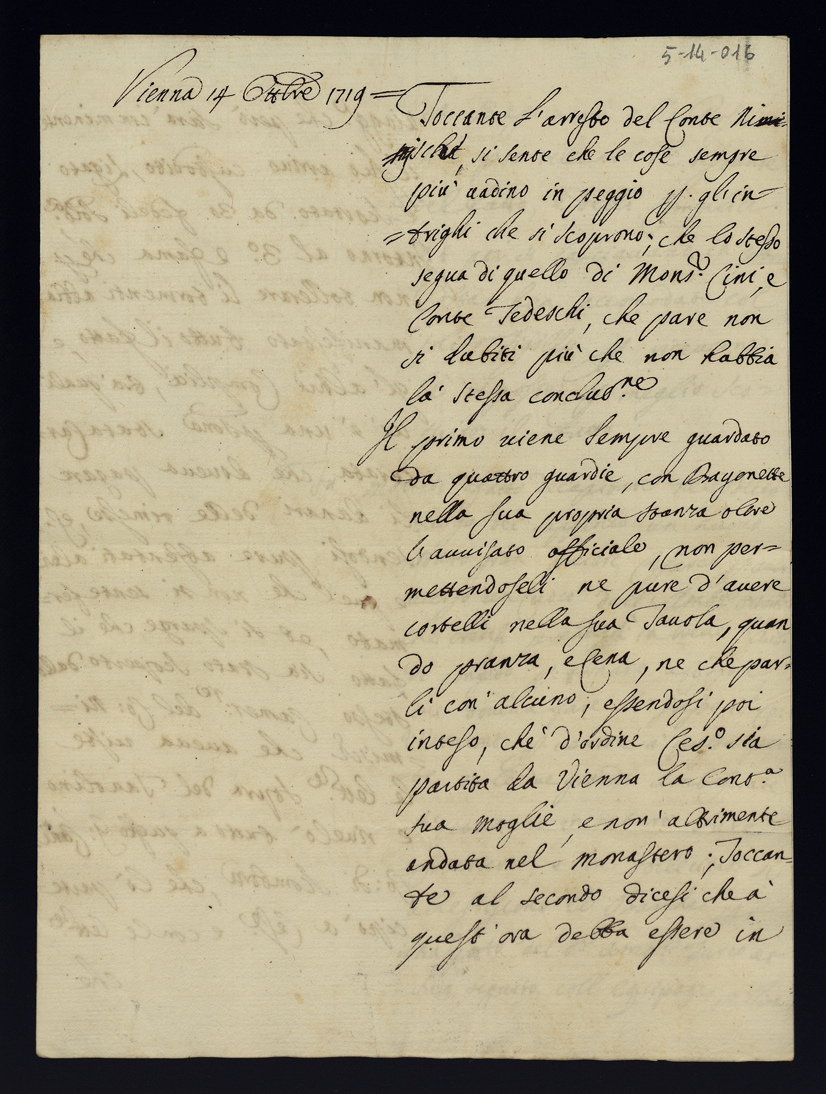 5-14-016
Vienna 14 Ottbre 1719 =
Toccante l'arresto del Conte Nimi-
schi, si sente che le cose sempre
più uadino in peggio p. gl'in=
=trighi che si scoprono; che lo stesso
segua di quello di Mons.r Cini, e
Conte Tedeschi, che pare non
si dubiti più che non habbia
la stessa conclus.ne
Il primo uiene sempre guardato
da quattro guardie, con Bagonette
nella sua propria stanza oltre
l'auuisato officiale, non per=
mettendoseli ne pure d'auere
cortelli nella sua Tauola, quan
do pranza, e Cena, ne che par=
li con alcuno; essendosi poi
inteso, che d'ordine Ces.o sia
partita da Vienna la Cont.a
sua Moglie, e non altrimente
andata nel monastero; Toccan=
te al secondo dicesi che à
quest'ora debba essere in